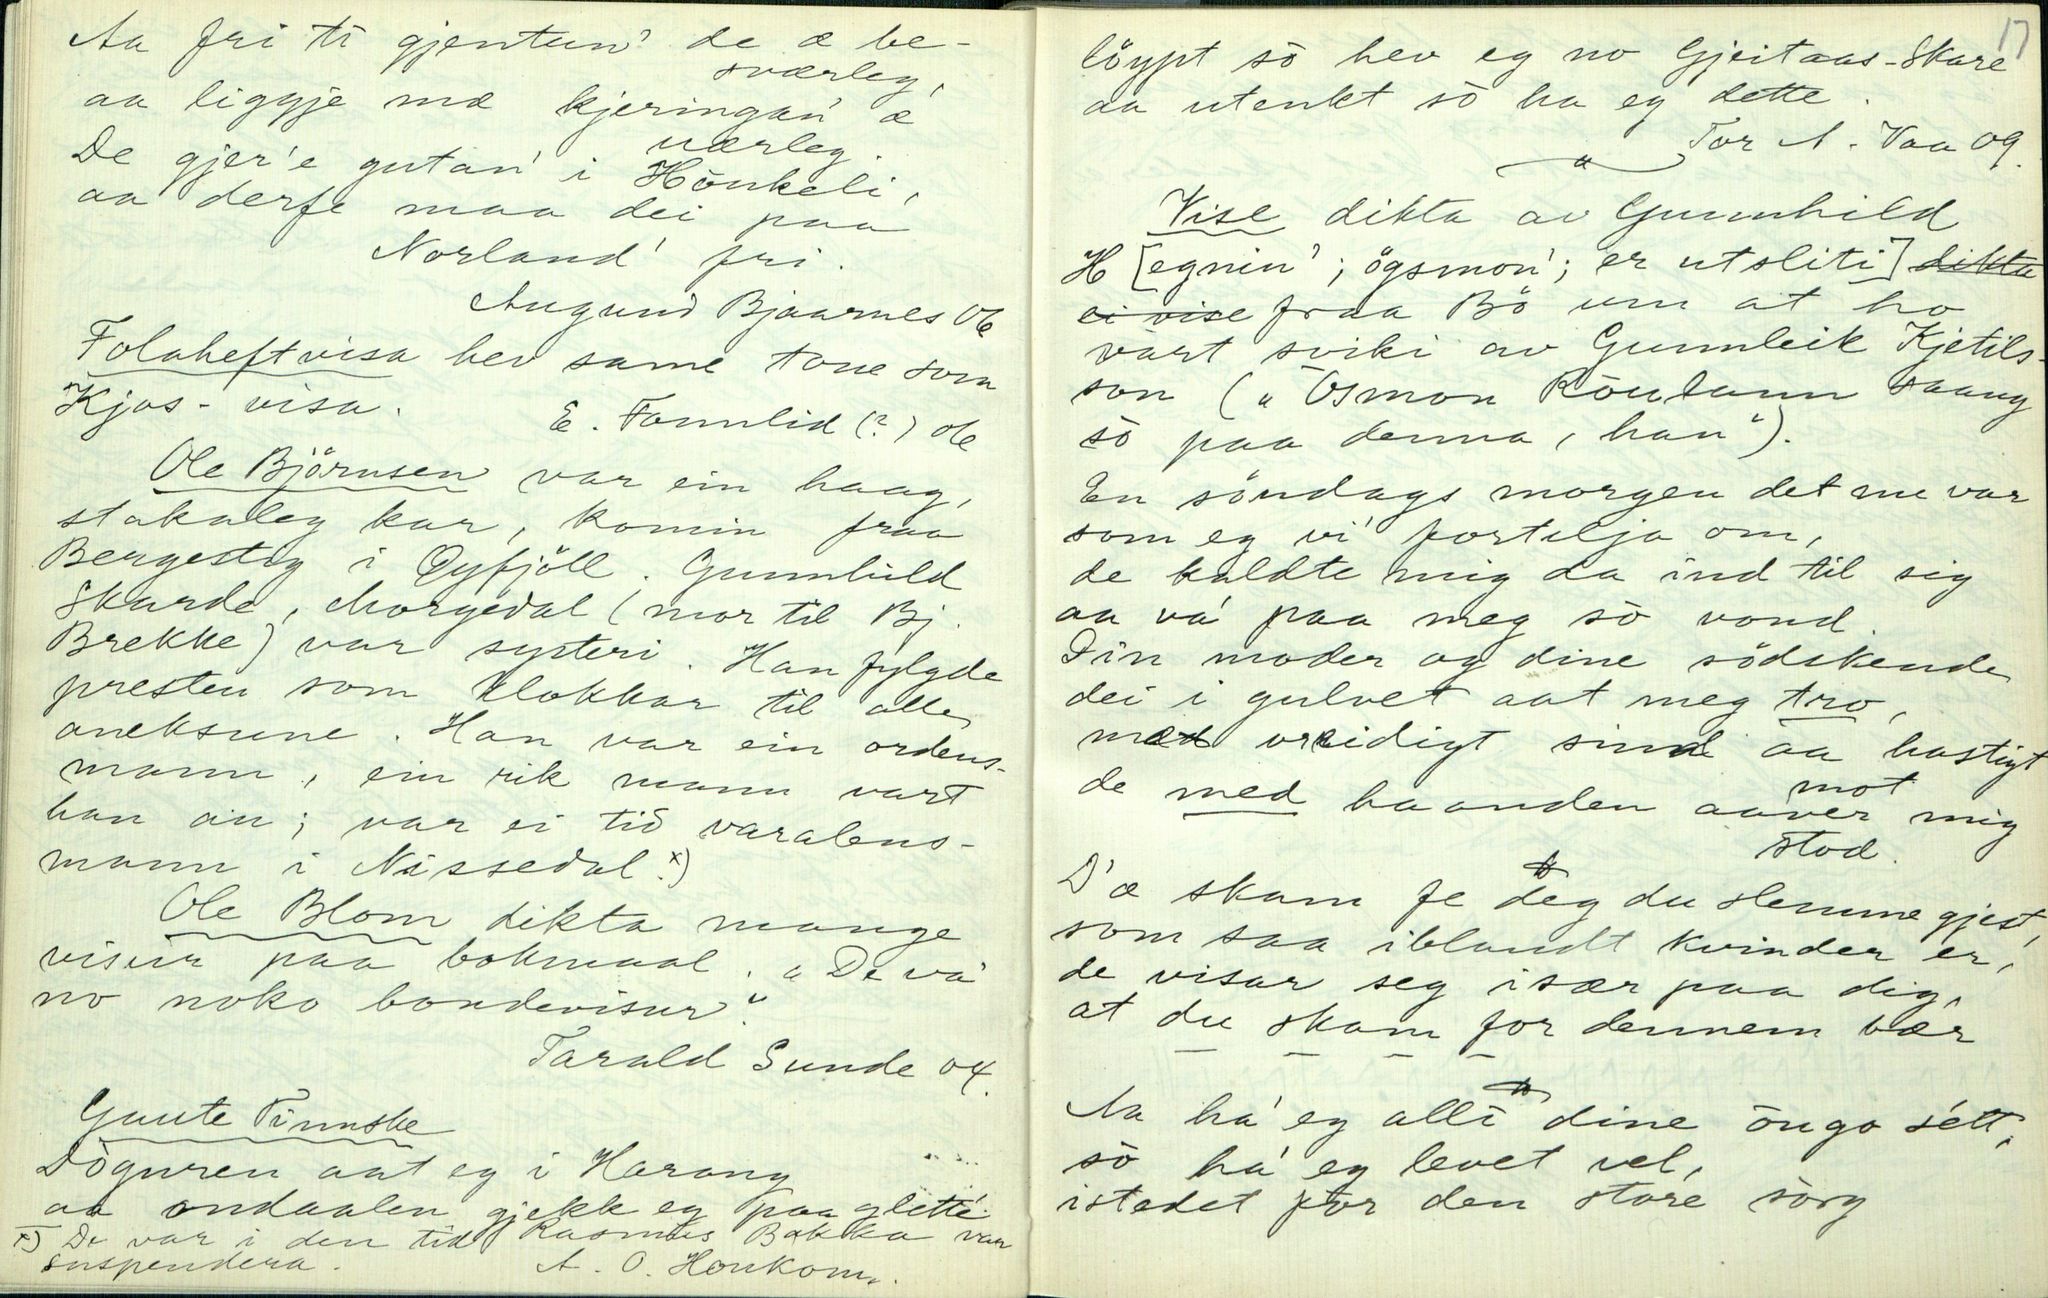 Aa fri ti gjentun' de æ be-
sværleg,
aa liggje mæ kjeringan' æ
uærleg.
De gjer'e gutan' i Hönkeli,
aa derfe maa dei paa
Norland' fri.
Augund Bjaarnes 06
Folaheftvisa hev same tone som
Kjos-visa.
E. Fonnlid (?) 06
Ole Björnsen var ein haag,
stakaleg kar, komin fraa
Bergestig i Öyfjöll. Gunnhild
Skarde, Morgedal (mor til Bj.
Brekke) var systeri. Han fylgde
presten som klokkar til alle
aneksune. Han var ein ordens-
mann, ein rik mann vart
han òn; var ei tid varalens-
mann i Nissedal. x)
Ole Blom dikta mange
visur paa bokmaal. „De va'
no noko bondevisur."
Tarald Sunde 04.
Gaute Tinnske
Döguren aat eg i Harang
aa ondaalen gjekk eg paa glette.
x) De var i den tid Rasmus Bakka var
suspendera. A. O. Honkom.
17
löypt so hev eg no Gjeitaas-Skare
aa utenkt so ha eg dette.
Tor A. Vaa 09.
"
Vise dikta av Gunnhild
H [egnin'; ögsmon'; er utsliti] dikta
ei vise fraa Bö um at ho
vart sviki av Gunnleik Kjetils-
son („Osmon Röulann saang
so paa denna, han").
En söndags morgen det nu var
som eg vi' fortelja om,
de kaldte mig da ind til sig
aa va' paa meg so vond.
Din moder og dine södskende
dei i gulvet aat meg tro,
med vreidigt sind aa hastigt
de med haanden aaver mot mig
stod.
D'æ skam fe deg du slemme gjest,
som saa iblandt kvinder er,
de visar seg især paa dig,
at du skam for dennem bær
Aa ha' eg alli dine öugo sett,
so ha' eg levet vel,
istedet for den store sorg